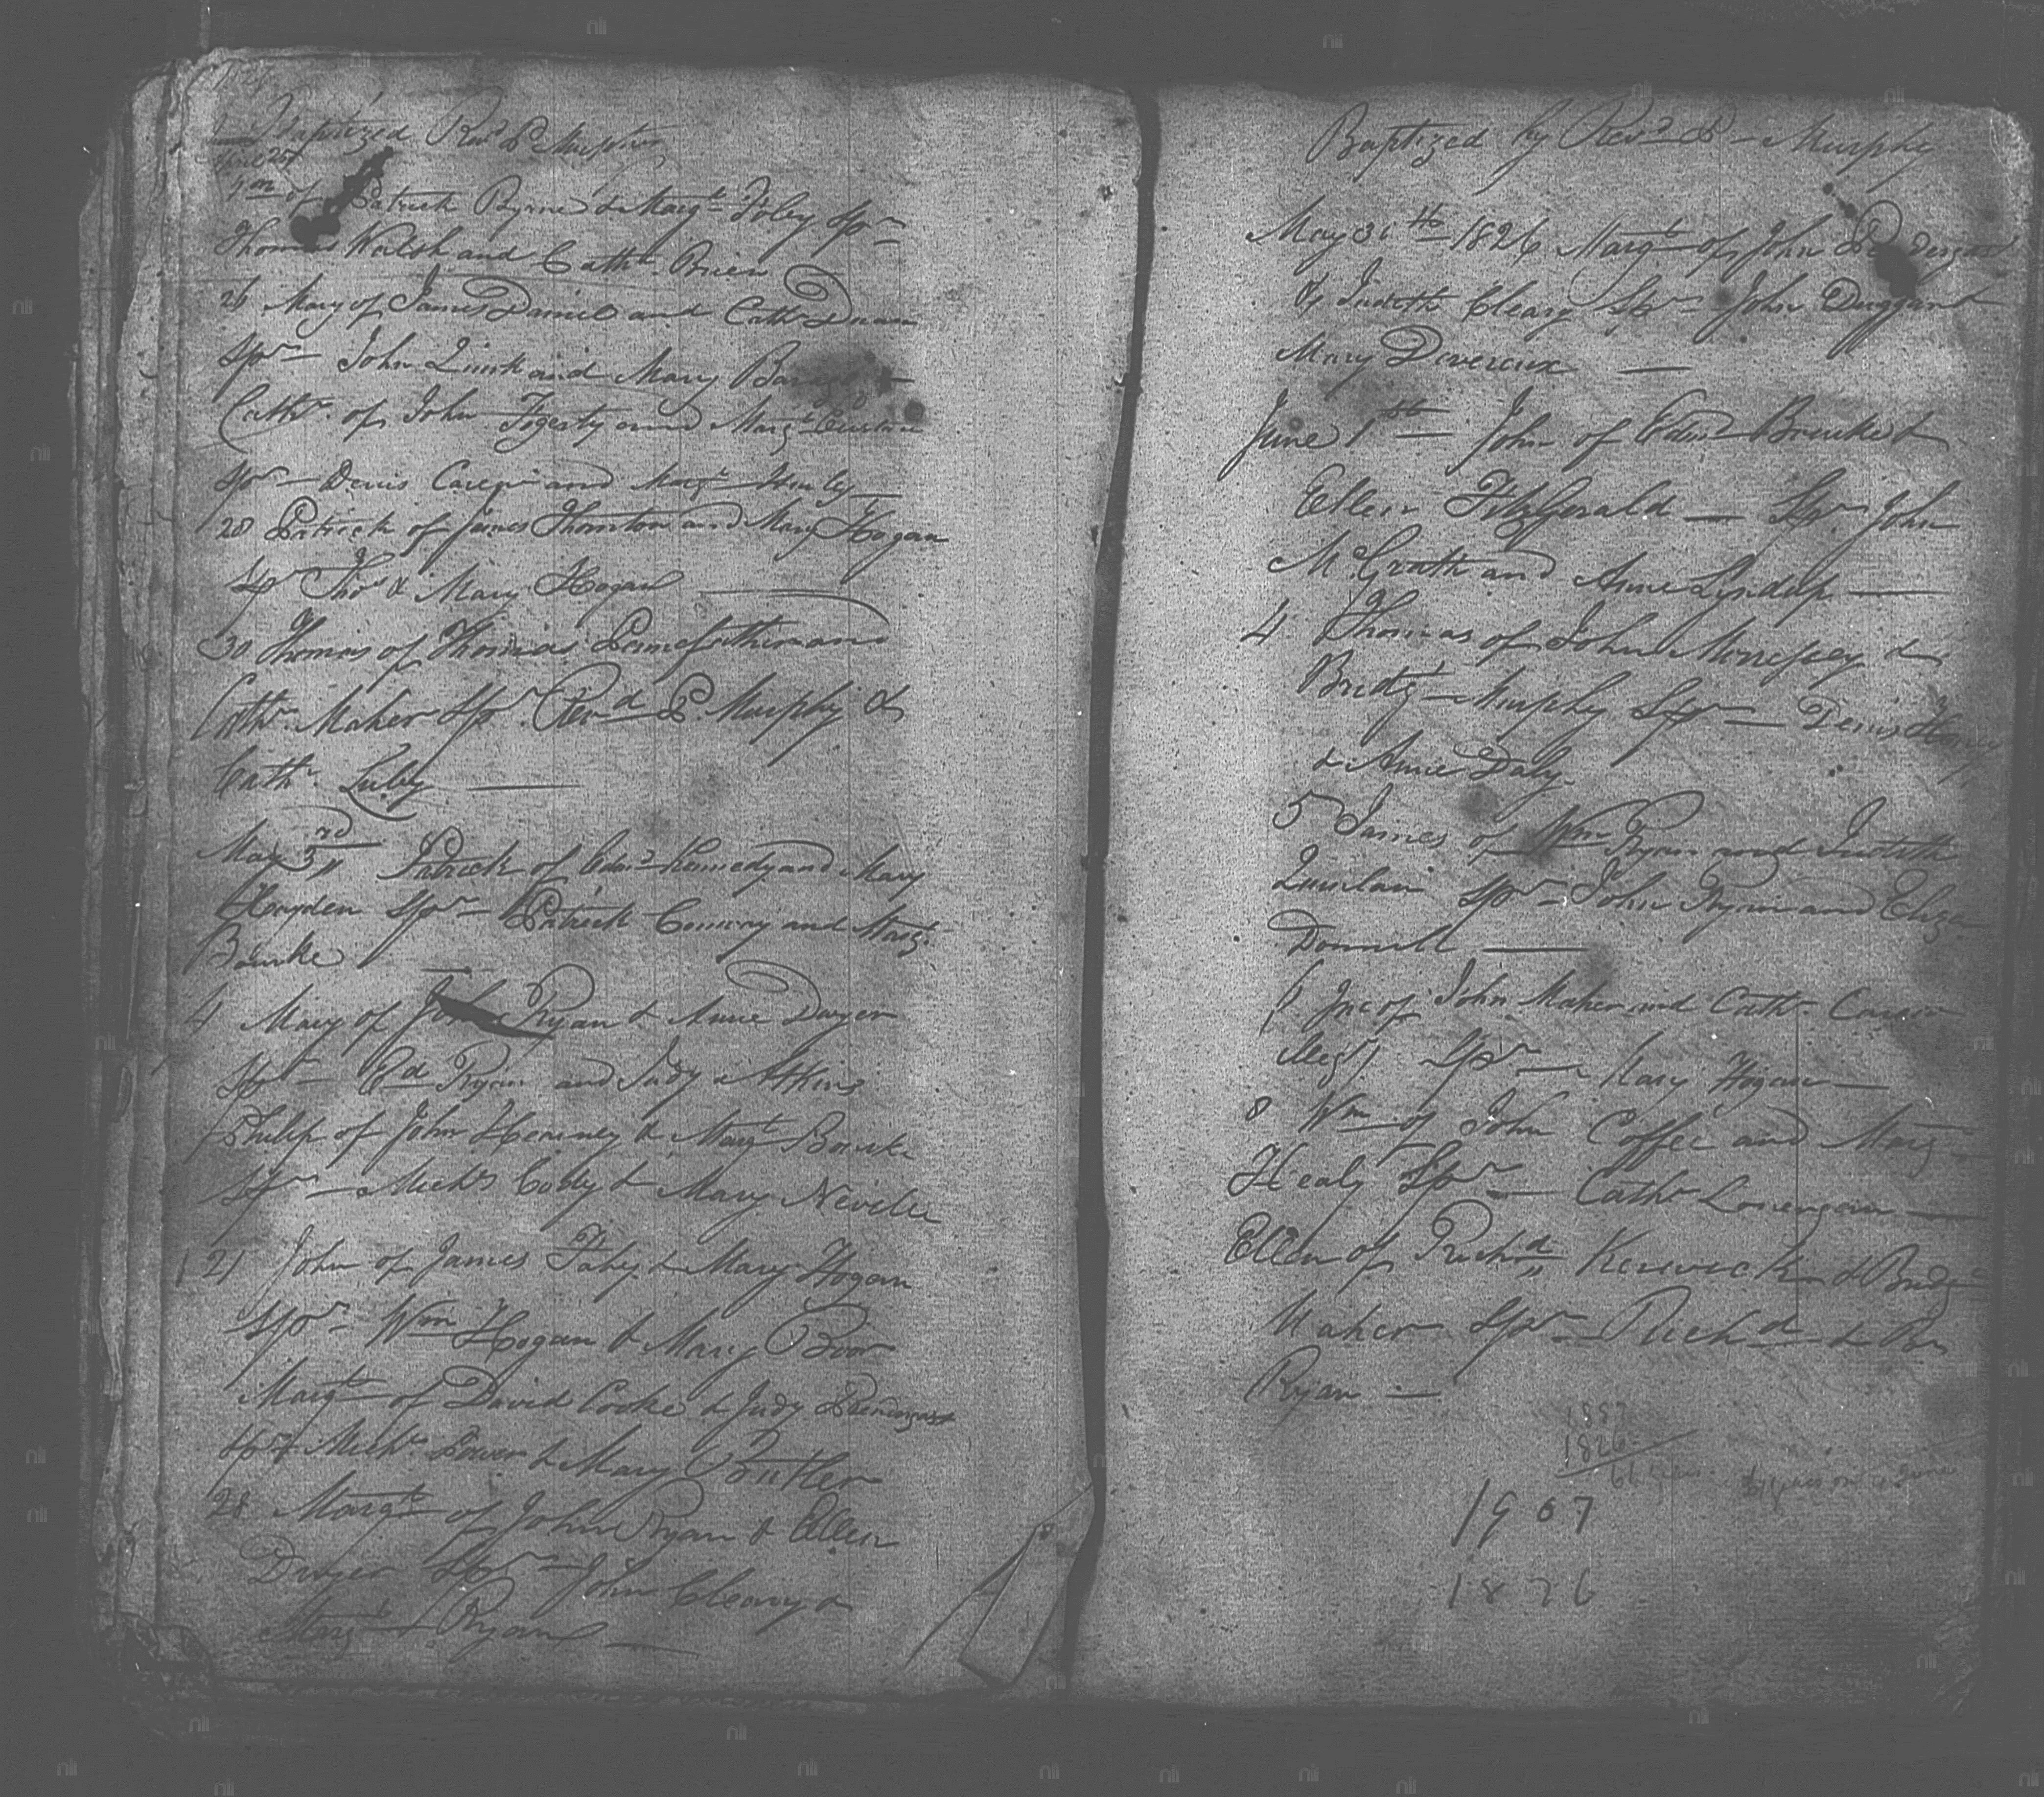 Baptized Revd P Murphy
Wm of Patrick Byrne & Margt Foley Spr
Thomas Walsh and Cathn Brien
26 Mary of James Daniel and Cathn
Spr John Quirk and Mary
Cathn of John Fogerty and Margt
Spr Denis and Margt
28 Patrick of James Thornton and Mary Hogan
Spr Thos & Mary Hogan
30 Thomas of Thomas and
Cathn Maher Spr Revd P. Murphy &
Cathn Luby
May 3rd Patrick of Edmd Kennedy and Mary
Hogden Spr Patrick and Margt
Bourke
4 Mary of John Ryan & Anne Dwyer
Spr Ed Ryan and Judy Atkins
Philip of John & Margt Bourke
Spr Michl & Mary Neville
21 John of James Fahy & Mary Hogan
Spr Wm Hogan & Mary
Margt of David Cooke & Judy Prendergast
Spr Michl Power & Mary Butler
28 Margt of John Ryan & Ellen
Dwyer Spr John Cleary &
Margt Ryan
Baptized by Revd P Murphy
May 31th 1826 Margt of John
& Judith Cleary Spr John Duggan &
Mary Devereux
June 1th John of Edmd &
Ellen FitzGerald Spr John
McGrath and Anne
4 Thomas of John &
Bridgt Murphy Spr Denis
& Anne Daly
5 James of Wm Ryan and Judith
Quinlan Spr John Ryan and Eliza
Donnell
Jno of John Maher and Cathn
Spr Mary Hogan
8 Wm of John Coffee and Marg
Healy Spr Cathn Lonergan
Ellen of Richd Kenrick & Bridgt
Maher Spr Richd &
Ryan
1887
1826
61
1907
1876